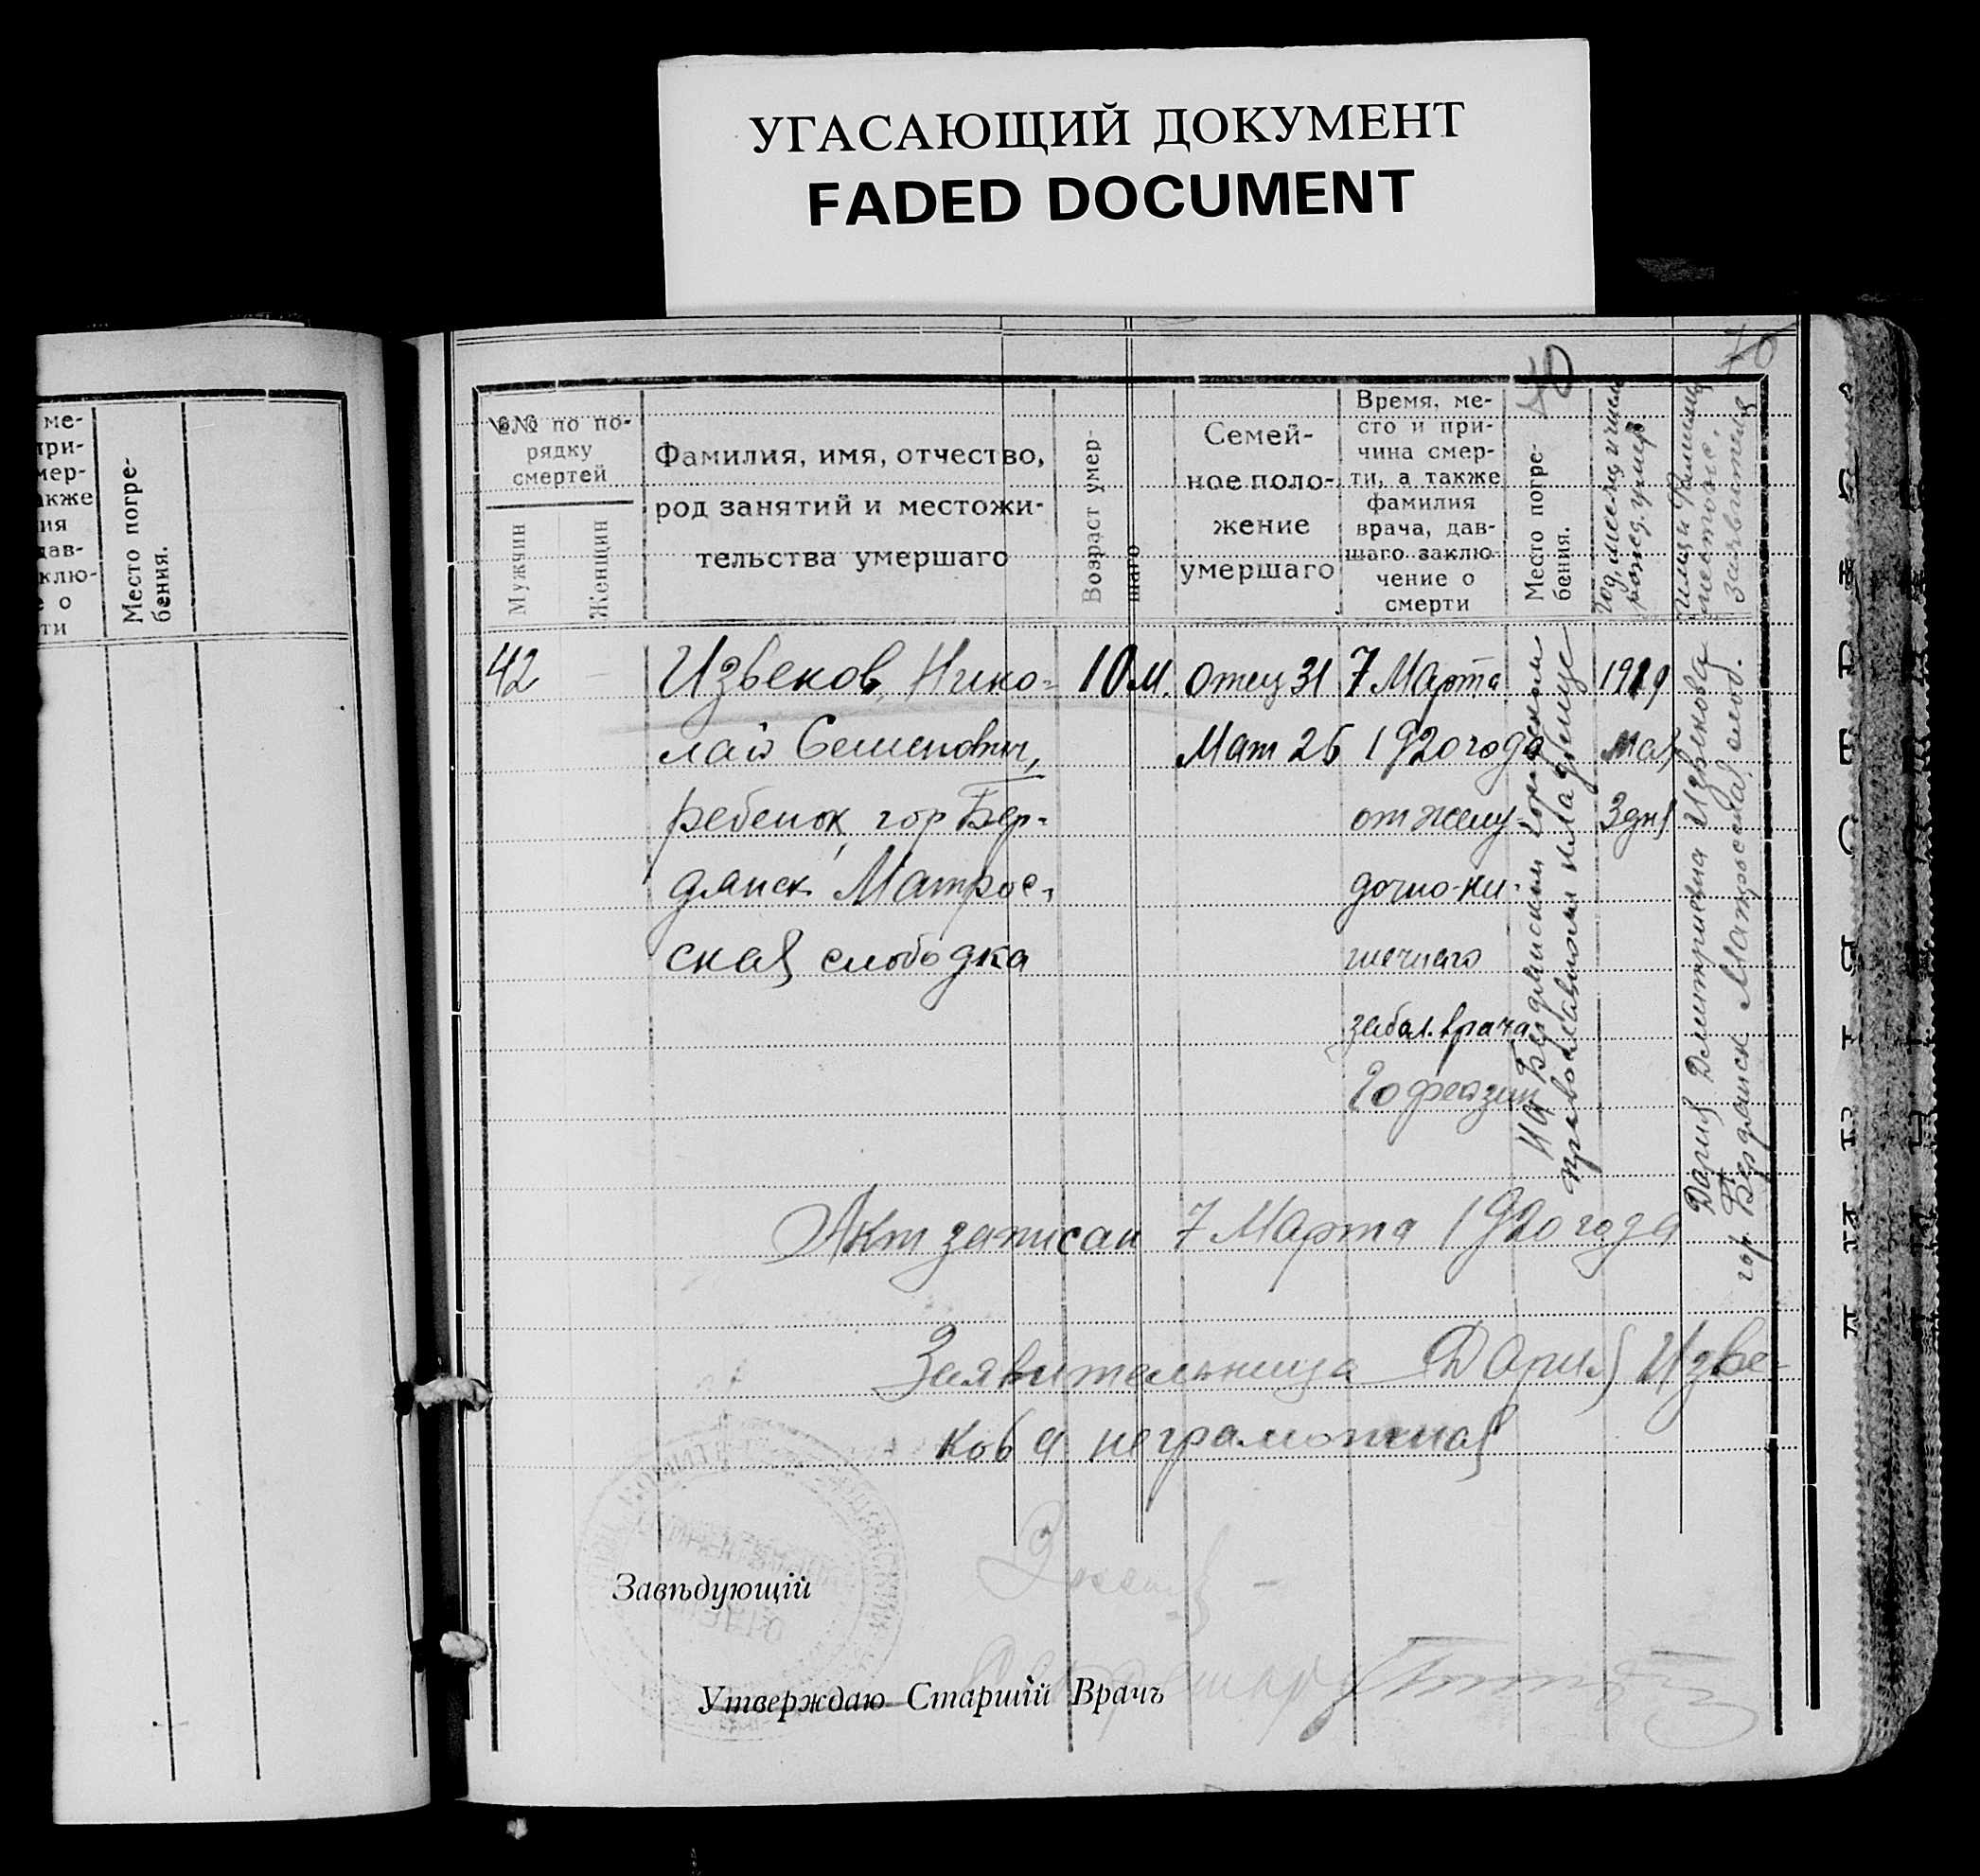 УГАСАЮЩИЙ ДОКУМЕНТ
FADED DOCUMENT
40
ме-
при-
мер-
акже
ия
дав-
клю-
е о
ти
Место погре-
бения.
№№ по по-
рядку
смертей
Мужчин
Женщин
Фамилия, имя, отчество,
род занятий и местожи-
тельства умершаго
Возраст умер-
шаго
Семей-
ное поло-
жение
умершаго
Время, ме-
сто и при-
чина смер-
ти, а также
фамилия
врача, дав-
шаго заклю-
чение о
смерти
Место погре-
бения.
Год, месяц и число
рожд. умер.
Имя и Фамилия
местожит.
заявителя
42
Извеков, Нико-
лай Семенович,
ребенок, гор Бер-
дянск, Матрос-
ская слободка
10 м.
Отец 31
Мат 26
7 Марта
1920 года
от желу-
дочно-ки-
шечнаго
забол. врача
На Бердянском городском
православном кладбище
1919
Мая
3 дня
Дария Дмитриевна Извекова
гор Бердянск Матросская слоб.
Акт записан 7 Марта 1920 года
Заявительница Дария Изве-
кова неграмотная
Завѣдующій
Утверждаю Старшій Врачъ